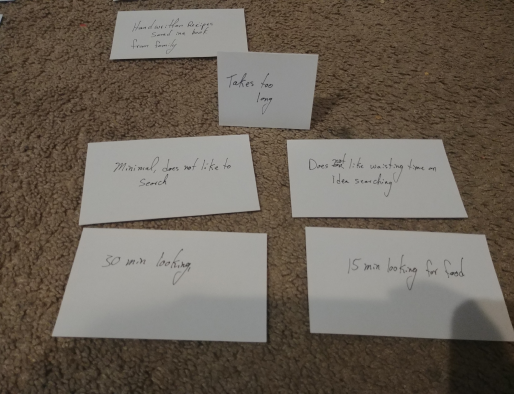 Handwritten Recipes
Saved in a book
from family
Takes too
long
Minimal, does not like to
Search
Does not like waisting time on
Idea searching
30 min looking
15 min looking for food